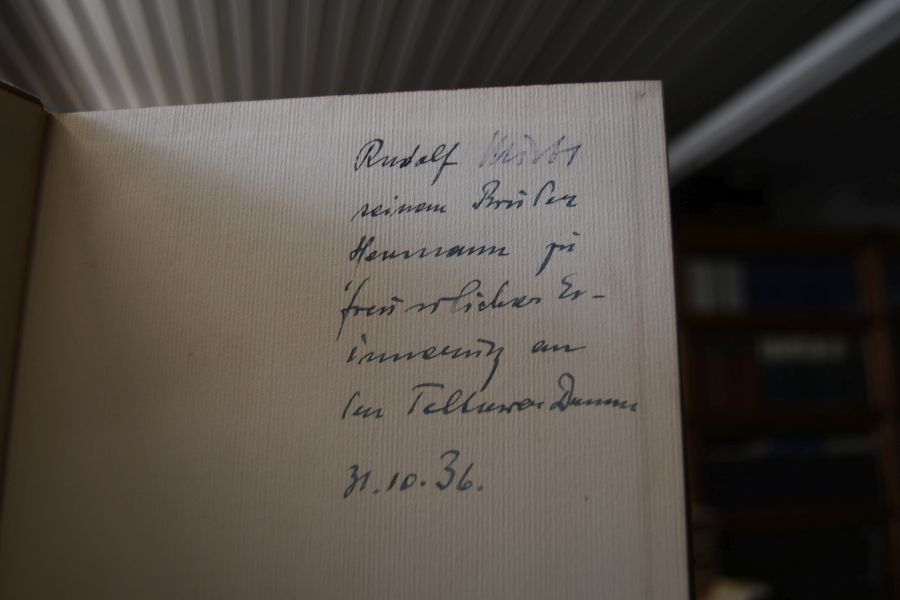 Rudolf
seinem Bruder
Hermann zu
freundlicher Er-
innerung an
den Teltower Damm
31.10.36.